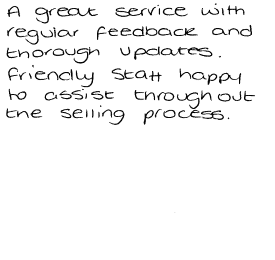 A great service with
regular feedback and
thorough updates.
Friendly staff happy
to assist throughout
the selling process.